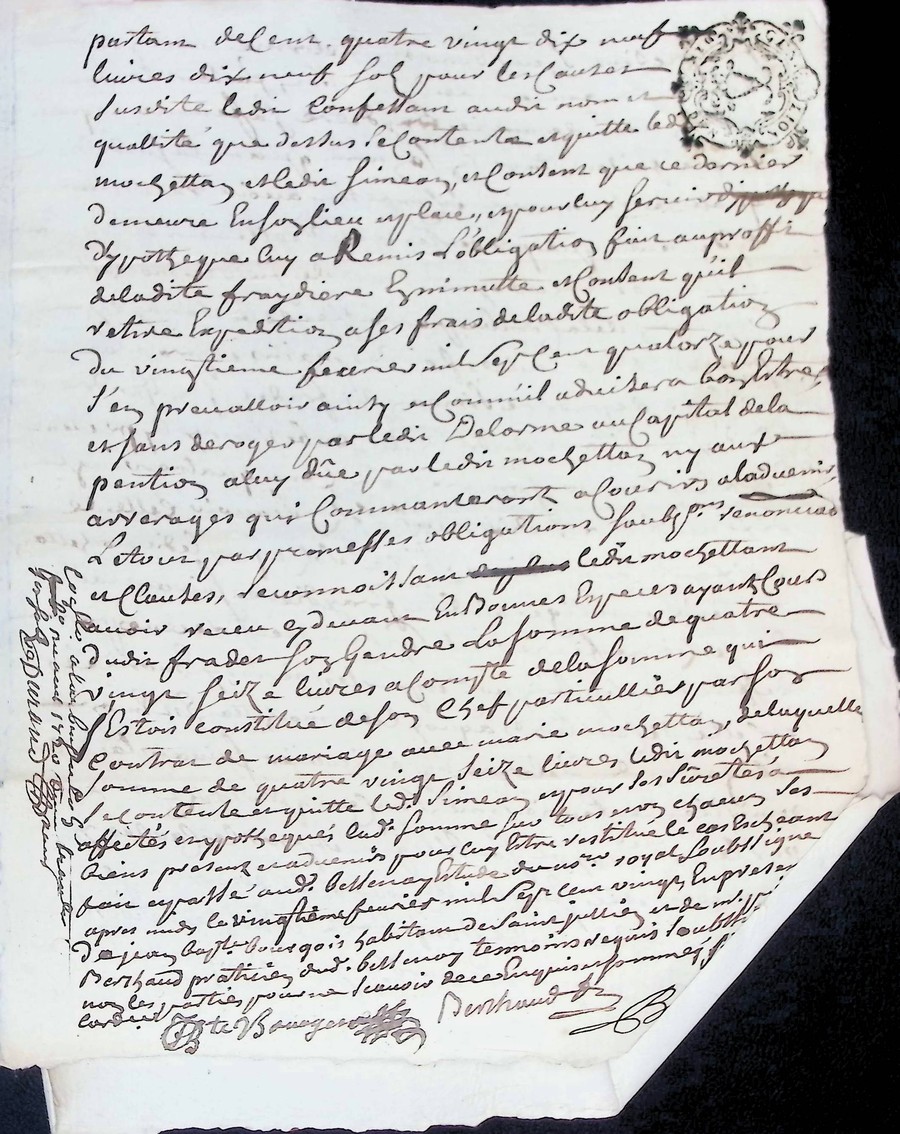 partant de Cent quatre vingt dix neuf
livres dix neuf sol pour les Causes
susdite ledit Confessant audit nom et
quallité que dessus se Contente et quitte ledit
mochettan et ledit Simeon, et Consent que ce dernier
demeure En son lieu et place, et pour luy servir
d'ypotheque luy a Remis L'obligation fait au proffit
de ladite fraydiere En minutte et Consent qu'il
retire Expedition a ses frais de ladite obligation
du vingtieme fevrier mil Sept Cent quatorze pour
s'en prevalloir ainsy et Comm'il advisera bon Estre,
et sans deroger par ledit Delorme au Capital de la
pention a luy düe par ledit mochettan ny aux
arrerages qui Commanseront a Courir a ladvenir,
Le tout par promesses obligations soubz^ons renonciaõ
et Clauses, reconnoissant ledit mochettant
avoir receu cy devant En Bonnes Especes ayant Cours
dudit frader son Gendre La somme de quatre
vingt seize livres a Compte de la somme qui
Estois constitué de son Chef particullier par son
Contrat de mariage avec marie mochettan, de laquelle
somme de quatre vingt seize livres ledit mochettan
se Contente et quitte led. Simeon, et pour les süretés a
affectés et ypothequés lad. somme sur tous ses
biens presents et advenir pour luy Estre restitué le cas Escheant
fait et passé aud. bellenay Estude du no^re royal soubsigné
apres midy le vingtieme fevrier mil Sept Cent vingt, En presence
de jean bap^te bourgois habitant de Saint jullien et de
Berthaud praticien aud. bellenay temoins requis soubsignés
non les parties pour ne scavoir de ce Enquis et sommés
J B^te Bourgeois
Berthaud
B
Con^lle a
mars 1720